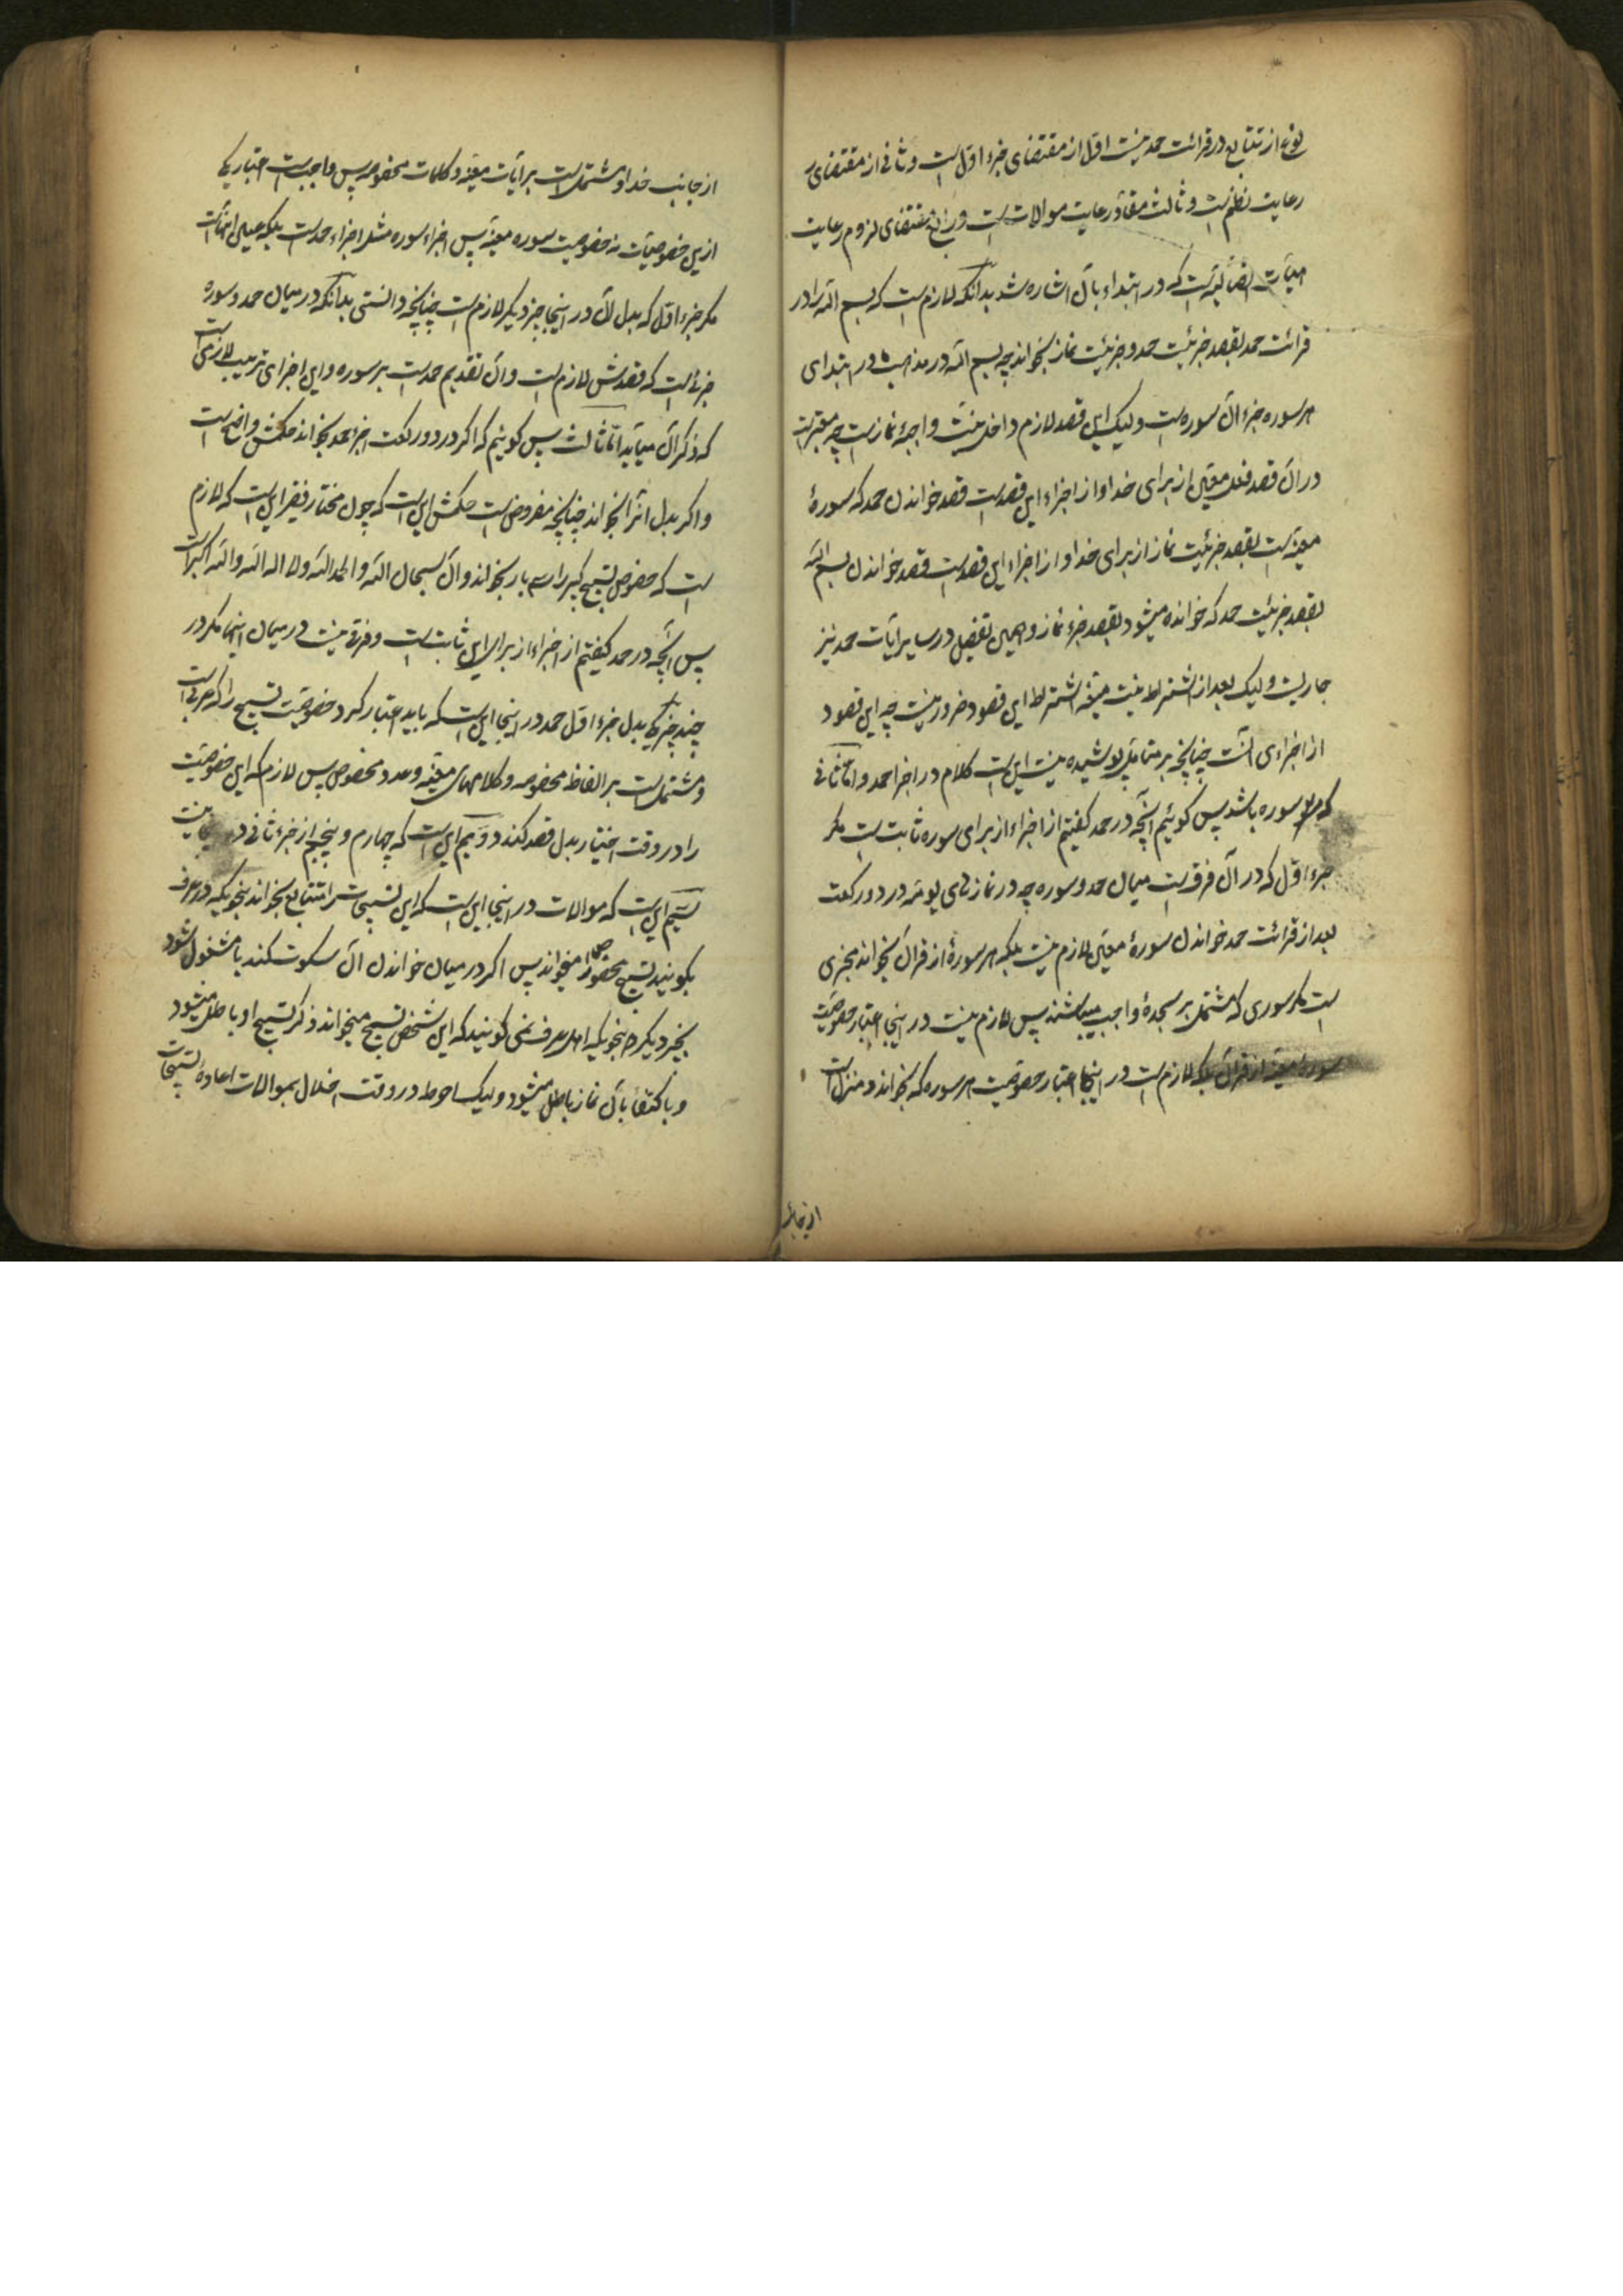 نوع از تتابع در قرائت حمد نیست اول از مقتضای جزء اول است و ثانی از مقتضای
رعایت نظم است و ثالث مفاد رعایت موالات است و رابع مقتضای لزوم رعایت
است که در ابتداء بآن اشاره شد بدانکه لازم است که بسم الله را در
قرائت حمد بقصد جزئیت حمد و جزئیت نماز بخواند چه بسم الله در مذهب ما در ابتدای
هر سوره جزء آن سوره است ولیک این قصد لازم داخل نیت واجبهٔ نماز است چه معتبر است
در آن قصد فعل معین از برای خدا و از اجزاء این قصد است قصد خواندن حمد که سورهٔ
معینه است بقصد جزئیت نماز از برای خدا و از اجزاء این قصد است قصد خواندن بسم الله
بقصد جزئیت حمد که خوانده میشود بقصد جزء نماز و همین تفصیل در سایر آیات حمد نیز
جاریست ولیک بعد از اشتراط نیت معینه اشتراط این قصود ضرور نیست چه این قصود
از اجزای آنست چنانچه بر متامل پوشیده نیست این است کلام در اجزا حمد و اما ثانی
که سوره باشد پس کوئیم آنچه در حمد کفتیم از اجزاء از برای سوره ثابت است مکر
جزء اول که در آن فرق است میان حمد و سوره چه در نمازهای یومیه در دو رکعت
بعد از قرائت حمد خواندن سورهٔ معین لازم نیست بلکه هر سورهٔ از قرآن بخواند مجزی
است مکر سوری که مشتمل بر سجدهٔ واجب میباشند پس لازم نیست در اینجا اعتبار خصوصیت
سورهٔ معینه از قرآن بلکه لازم است در اینجا اعتبار خصوصیت هر سوره که بخواند و منزل است
از جانب
از جانب خدا و مشتمل است بر آیات معینه و کلمات مخصوصه پس واجب است اعتبار یکی
از این خصوصیات نه خصوصیت سوره معینه پس اجزاء سوره مثل اجزاء حمد است بلکه عین انهاست
مکر جزء اول که بدل آن در اینجا چیز دیکر لازم است چنانچه دانستی بدانکه در میان حمد و سوره
جزئی است که قصدش لازم است و آن تقدیم حمد است بر سوره و این اجزای ترتیب لازمی است
که ذکر آن میآید اما ثالث پس کوئیم که اکر در دو رکعت اخر حمد بخواند حکمش واضح است
و اکر بدل انرا بخواند چنانچه مفروض است حکمش این است که چون مختار فقیر این است که لازم
است که خصوص تسبیح کبیر را سه بار بخواند و آن سبحان الله و الحمد لله و لا اله الا الله و الله اکبر است
پس آنچه در حمد کفتیم از اجزاء از برای این ثابت است و فرقی نیست در میان اینها مکر در
چند چیز یکی بدل جزء اول حمد در اینجا این است که باید اعتبار کرد خصوصیت تسبیح را که عربی است
و مشتمل است بر الفاظ مخصوصه و کلامهای معینه و عدد مخصوص پس لازم که این خصوصیت
را در وقت اختیار بدل قصد کند دویم این است که چهارم و پنجم از جزء ثانی در اینجا نیست
سیم این است که موالات در اینجا این است که این تسبیحات را متتابع بخواند بنحویکه در عرف
بکویند تسبیح مخصوص را میخواند پس اکر در میان خواندن آن سکوت کند یا مشغول شود
بچیز دیکر بنحویکه اهل عرف نمی کویند که این شخص تسبیح میخواند ذکر تسبیح او باطل میشود
و باکتفاء بآن نماز باطل میشود ولیک احوط در وقت اخلال بموالات اعادهٔ تسبیحات